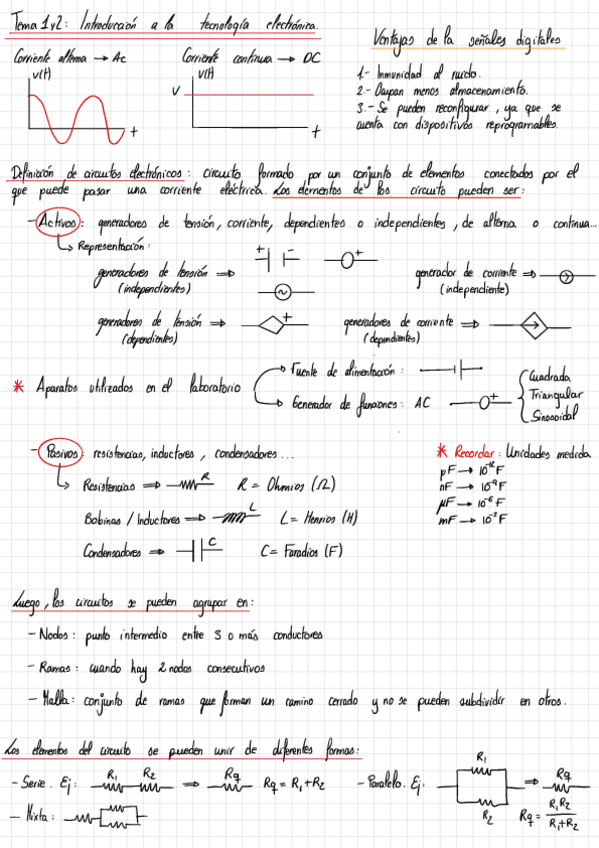 Tema 1 y 2: Introducción a la tecnología electrónica.
Corriente alterna → Ac
v(t)
t
Corriente continua → DC
v(t)
V
t
Ventajas de la señales digitales
1.- Inmunidad al ruido.
2.- Ocupan menos almacenamiento.
3.- Se pueden reconfigurar, ya que se
cuenta con dispositivos reprogramables.
Definición de circuitos electrónicos: circuito formado por un conjunto de elementos conectados por el
que puede pasar una corriente eléctrica. Los elementos de los circuito pueden ser:
- Activos: generadores de tensión, corriente, dependientes o independientes, de alterna o continua...
↳ Representación:
generadores de tensión ⇒
(independientes)
generador de corriente ⇒
(independiente)
generadores de tensión ⇒
(dependientes)
generadores de corriente ⇒
(dependientes)
* Aparatos utilizados en el laboratorio
Fuente de alimentación:
Generador de funciones: AC
Cuadrada
Triangular
Sinosoidal
- Pasivos: resistencias, inductores, condensadores...
↳ Resistencias ⇒ R R = Ohmios (Ω)
Bobinas / Inductores ⇒ L L = Henrios (H)
Condensadores ⇒ C C = Faradios (F)
* Recordar: Unidades medida
pF → 10⁻¹² F
nF → 10⁻⁹ F
μF → 10⁻⁶ F
mF → 10⁻³ F
Luego, los circuitos se pueden agrupar en:
- Nodos: punto intermedio entre 3 o más conductores
- Ramas: cuando hay 2 nodos consecutivos
- Malla: conjunto de ramas que forman un camino cerrado y no se pueden subdividir en otros.
Los elementos del circuito se pueden unir de diferentes formas:
- Serie. Ej: R₁ R₂ ⇒ Rq Rq = R₁+R₂
- Paralelo. Ej: R₁ R₂ ⇒ Rq
Rq = R₁R₂ / R₁+R₂
- Mixta: